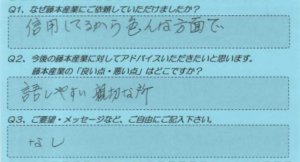 Q1、なぜ藤本産業にご依頼していただけましたか?
信用してるから色んな方面で
Q2、今後の藤本産業に対してアドバイスいただきたいと思います。
藤本産業の「良い点・悪い点」はどこですか?
話しやすい親切な所
Q3、ご要望・メッセージなど、ご自由にご記入下さい。
なし